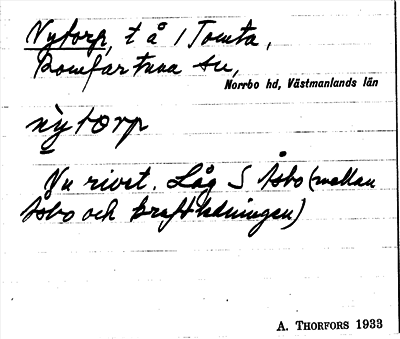 Nytorp, t å 1 Tomta,
Romfartuna sn,
Norrbo hd, Västmanlands län
nytorp
Nu rivet. Låg S Åsbo (mellan
Åsbo och kraftledningen)
A. THORFORS 1933